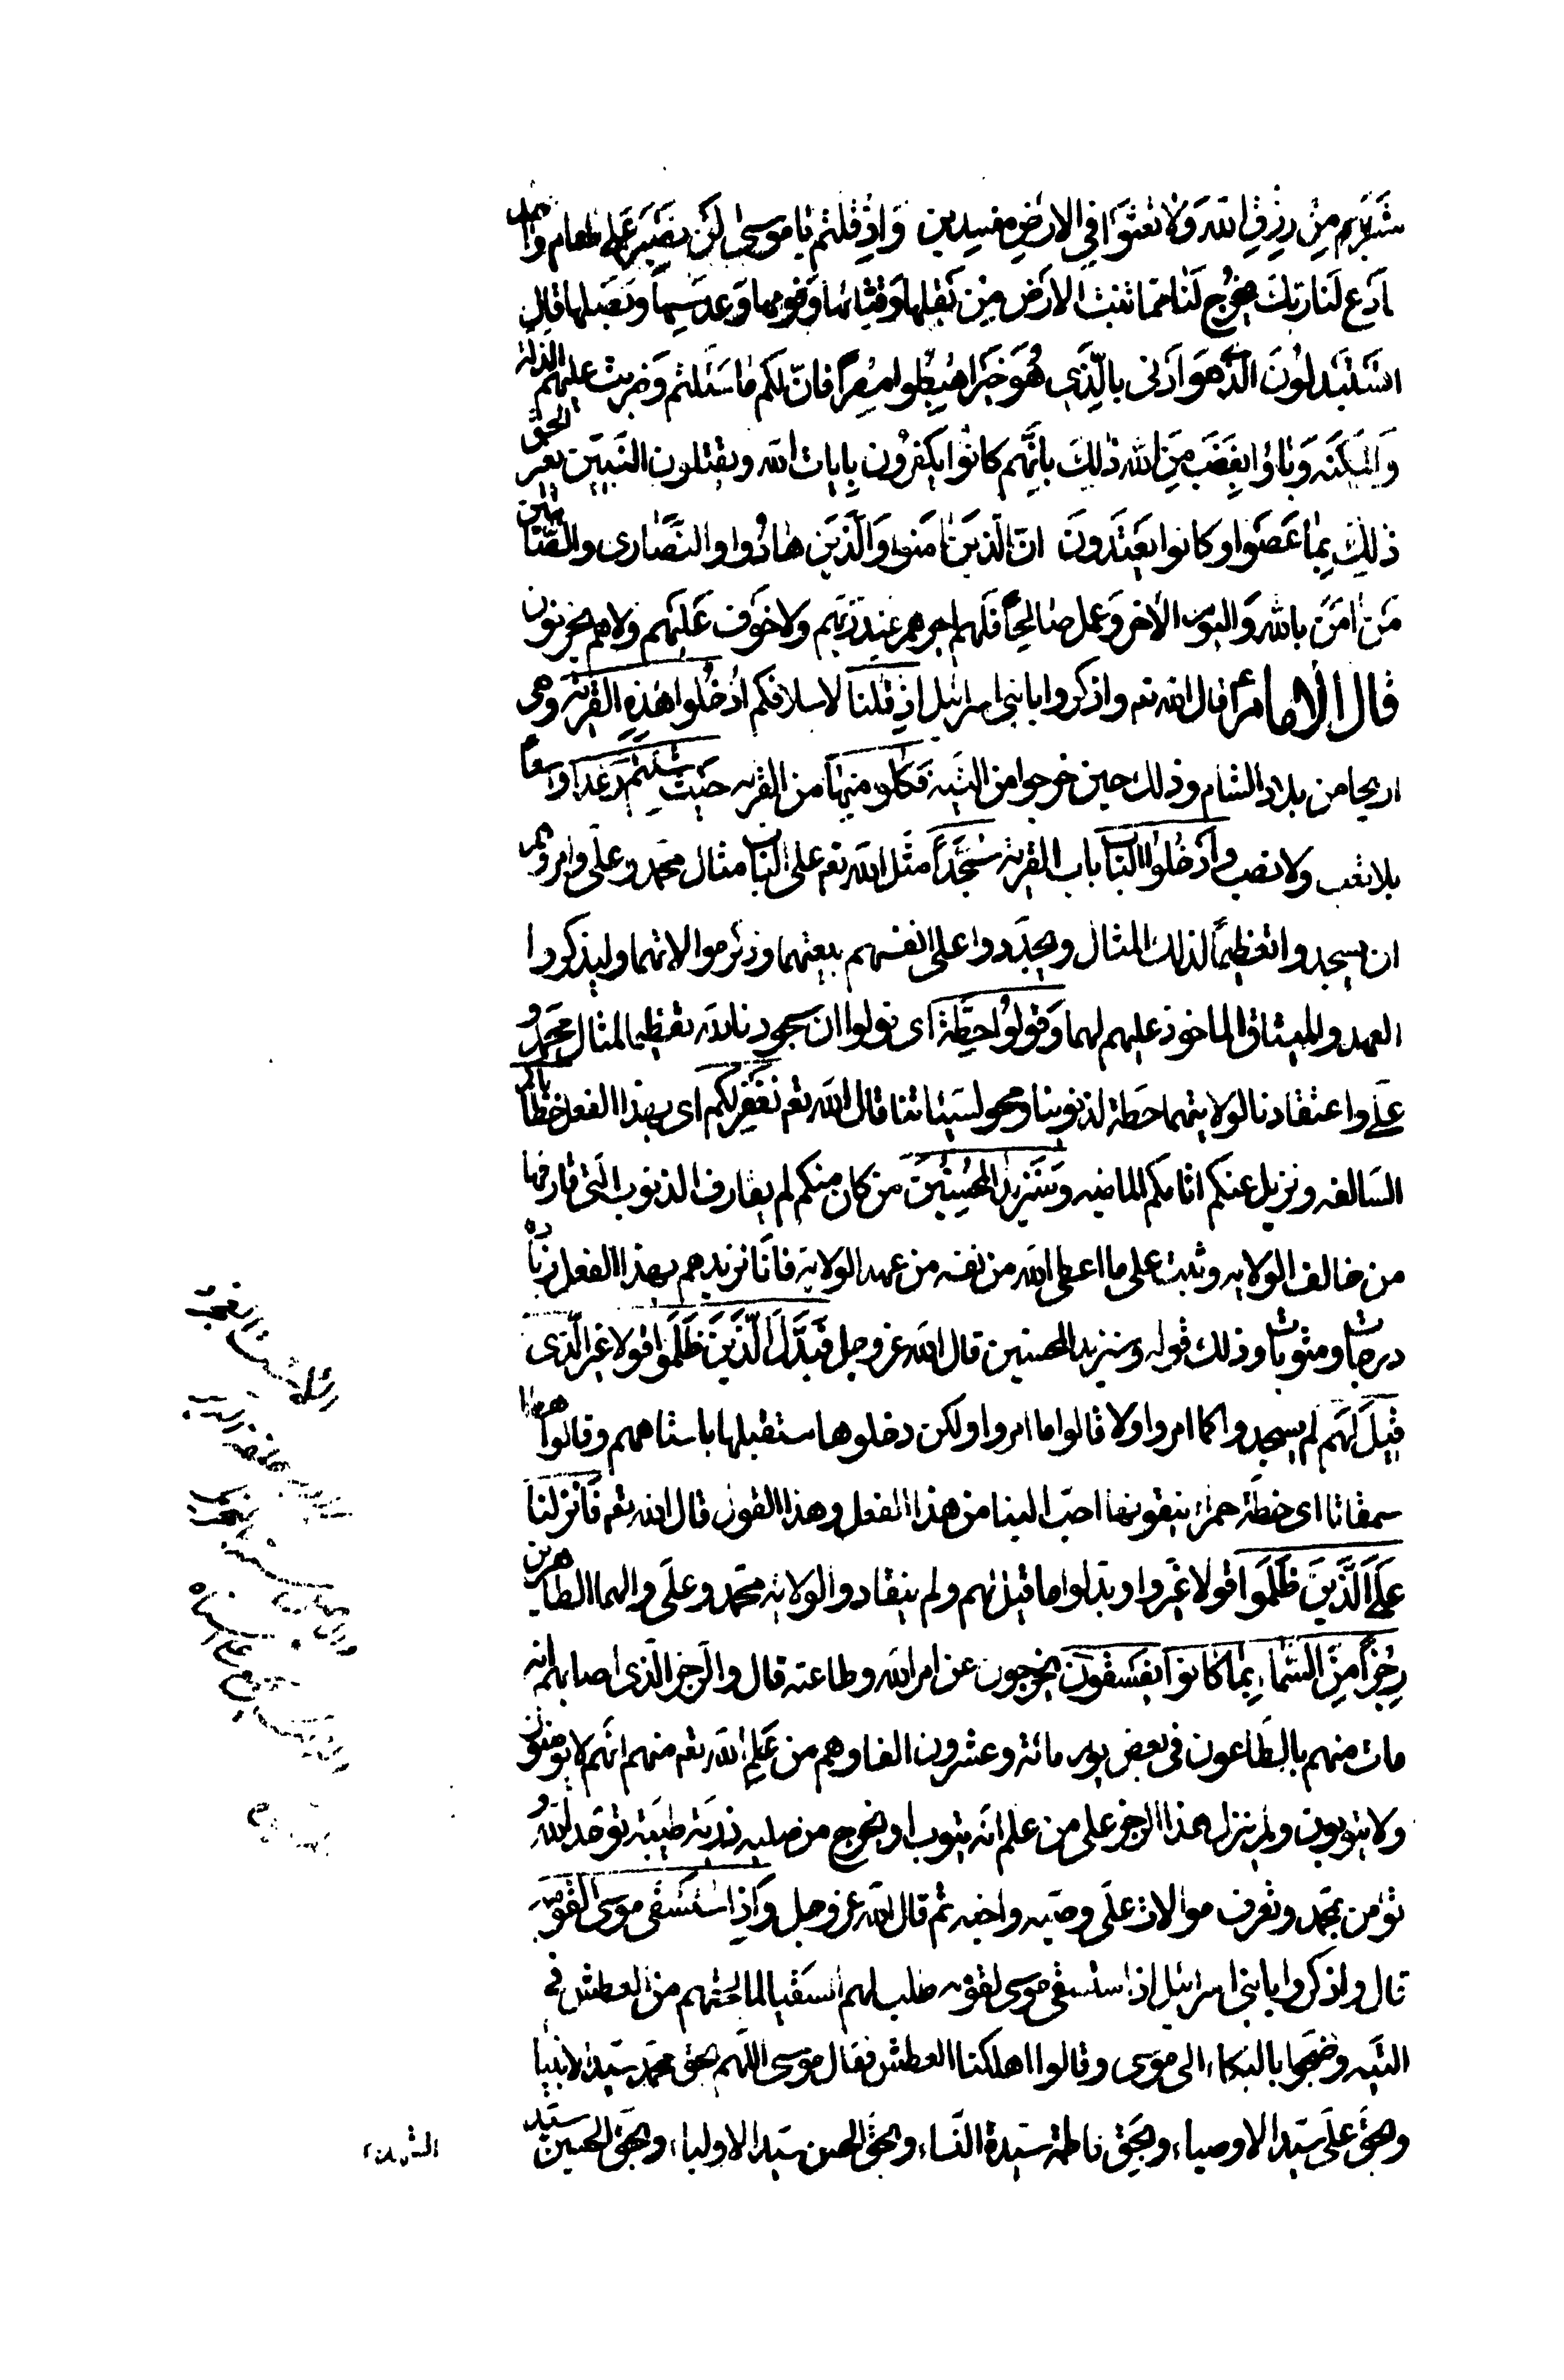 شَرَبَهُم مِنْ رِزْقِ اللهِ وَلَا تَعْثَوْا فِي الْارْضِ مُفْسِدِين وَاِذْ قُلْتُم يَا مُوسى لَنْ نَصْبِرَ عَلى طعام واحد
ادْعُ لَنَا رَبَّكَ يُخْرِجْ لَنَا مِمّا تُنْبِتُ الْارَضُ مِنْ بَقْلِها وَقِثّائها وَفومِها وَعَدَسِها وَبَصَلِها قال
اَتَسْتَبْدِلُونَ الَّذي هُوَ اَدْنى بالّذِي هُوَ خَيرٌ اهْبِطُوا مِصْراً فانّ لَكم ما سَئَلتم وَضُرِبت عليهم الذلة
وَالْمَسْكَنَة وَبَاؤُا بِغَضَبٍ مِنَ الله ذٰلِكَ بِانَّهم كانُوا يَكفرُون بِايات الله ويقتلون النَّبيّن بغير الحق
ذٰلِكَ بِما عَصَوْا وكانوا يعْتَدُونَ انّ الّذينَ امَنوا وَالَّذينَ هادُوا والنّصارى والصّابئين
مَنْ امَنَ بالله وَاليوم الاخر وَعمل صالِحاً فَلَهم اجرهم عند رَبّهم ولا خوف عَلَيهم ولا هم يحزنون
قال الامام ع قال الله تعم واذكروا يا بنى اسرائيل اِذْ قُلنا لاسلافكم ادْخُلوا هٰذِه القَرْيَة وهى
اريحا من بلاد الشام وذلك حين خرجوا من التيه فَكُلوا مِنْها من القرية حَيْثُ شِئْتُم رَغَداً واسعاً
بلا تعب ولا نصب وادْخُلوا الباب باب القرية سُجَّداً مثّل الله تعم على الباب مثال محمّد وعلى وامرهم
ان يسجدوا تعظيماً لذلك المثال ويجدّدوا على انفسهم بيعتهما وذكر موالاتهما وليذكروا
العهد والميثاق الماخوذ عليهم لهما وَقولُوا حِطَّة اى قولوا ان سجودنا لله تعظيما لمثال محمّد و
علّى واعتقادنا لولايتهما حطة لذنوبنا ومحو لسَيئاتنا قال الله تعم نَغْفِرْ لَكُم اى بهذا الفعل خَطَاياكُم
السّالفه ونزيل عنكم اثامكم الماضيه وَسَنَزيدُ الْمُحْسِنينَ من كان منكم لم يقارف الذنوب التى قارفها
من خالف الولايه وثبت على ما اعطى الله من نفسه من عهد الولاية فانّا نزيدهم بهذا الفعل زيادة
درجات ومثوبات وذلك قوله وسنزيد المحسنين قال الله عز وجل فَبَدَّلَ الّذينَ ظَلَمُوا قولا غيرَ الّذى
قيلَ لَهُم لم يسجدوا كما امروا ولا قالوا ما امروا ولكن دخلوها مستقبلها باستاههم وقالوا هطا
سمقانا اى حنطة حمراء نتقوتها احبّ الينا من هذا الفعل وهذا القول قال الله تعم فَاَنْزلنا
عَلَى الَّذينَ ظَلَمُوا قولا غيّروا وبدّلوا ما قيل لهم ولم ينقادوا لولاية محمّد وعلى والهما الطاهرين
رِجْزاً مِنَ السَّماء بِما كانوا يَفْسقُون يخرجون عن امر الله وطاعته قال والرّجز الّذى اصابهم انه
مات منهم بالطّاعون فى بعض يوم مائة وعشرون الفا وهم من عَلِم الله تعم منهم انّهم لا يؤمنون
ولا يتوبون ولم ينزل هذا الرجز على من علم انّه يتوب او يخرج من صلبه ذريّة طيبّة توحّد الله و
تؤمن بمحمّد وتعرف موالاة على وصيّه واخيه ثم قال الله عز وجل وَاِذِ اسْتَسْقى موسى لقومه
قال واذكروا يا بنى اسرائيل اذ استسقى موسى لقومه طلب لهم السّقيا لما لحقهم من العطش فى
التّيه وضجّوا بالبكاء الى موسى وقالوا اهلكنا العطش فقال موسى اللّهم بحق محمّد سيّد الانبيا
وبحقّ علّى سيّد الاوصياء وبحقّ فاطمة سيّدة النّساء وبحقّ الحسن سيّد الاولياء وبحقّ الحسين سيّد
الشهداء